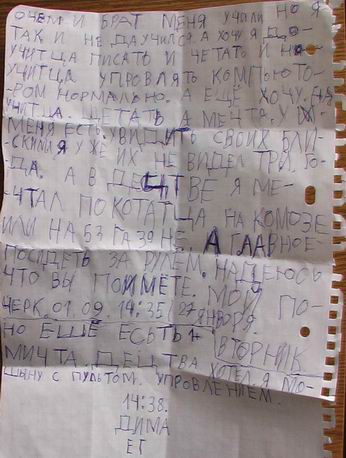 ОЧЕМ И БРАТ МЕНЯ УЧИЛИ НО Я
ТАК И НЕ ДАУЧИЛСЯ. А ХОЧУ Я ДО-
УЧИТЦА ПИСАТЬ И ЧЕТАТЬ И НА-
УЧИТЦА УПРОВЛЯТЬ КОМПЬЮТО-
РОМ НОРМАЛЬНО. А ЕЩЕ ХОЧУ
УЧИТЦА. ЦЕТАТЬ А МЕЧТА. У
МЕНЯ ЕСТЬ. УВИДИТЬ СВОИХ БЛИ-
СКИМ Я УЖЕ ИХ НЕ ВИДЕЛ ТРИ. ГО-
ДА. А В ДЕЦТВЕ Я МЕ-
ЧТАЛ ПОКОТАТЦА НА КОМОЗЕ
ИЛИ НА БЗ ГАЗЭНЕ. А ГЛАВНОЕ-
ПОСИДЕТЬ ЗА РУЛЕМ. НАДЕЮСЬ
ЧТО ВЫ ПОЙМЁТЕ. МОЙ ПО-
ЧЕРК. 01. 09. 14:35 / 27 ЯНВОРЯ.
НО ЕЩЁ ЕСТЬ 1 ВТОРНИК
МИЧТА. ДЕЦТВА ХОТЕЛ. Я МО-
ШЫНУ С ПУЛЬТОМ. УПРОВЛЕНИЕМ.
14:38.
ДИМА
ЕГ